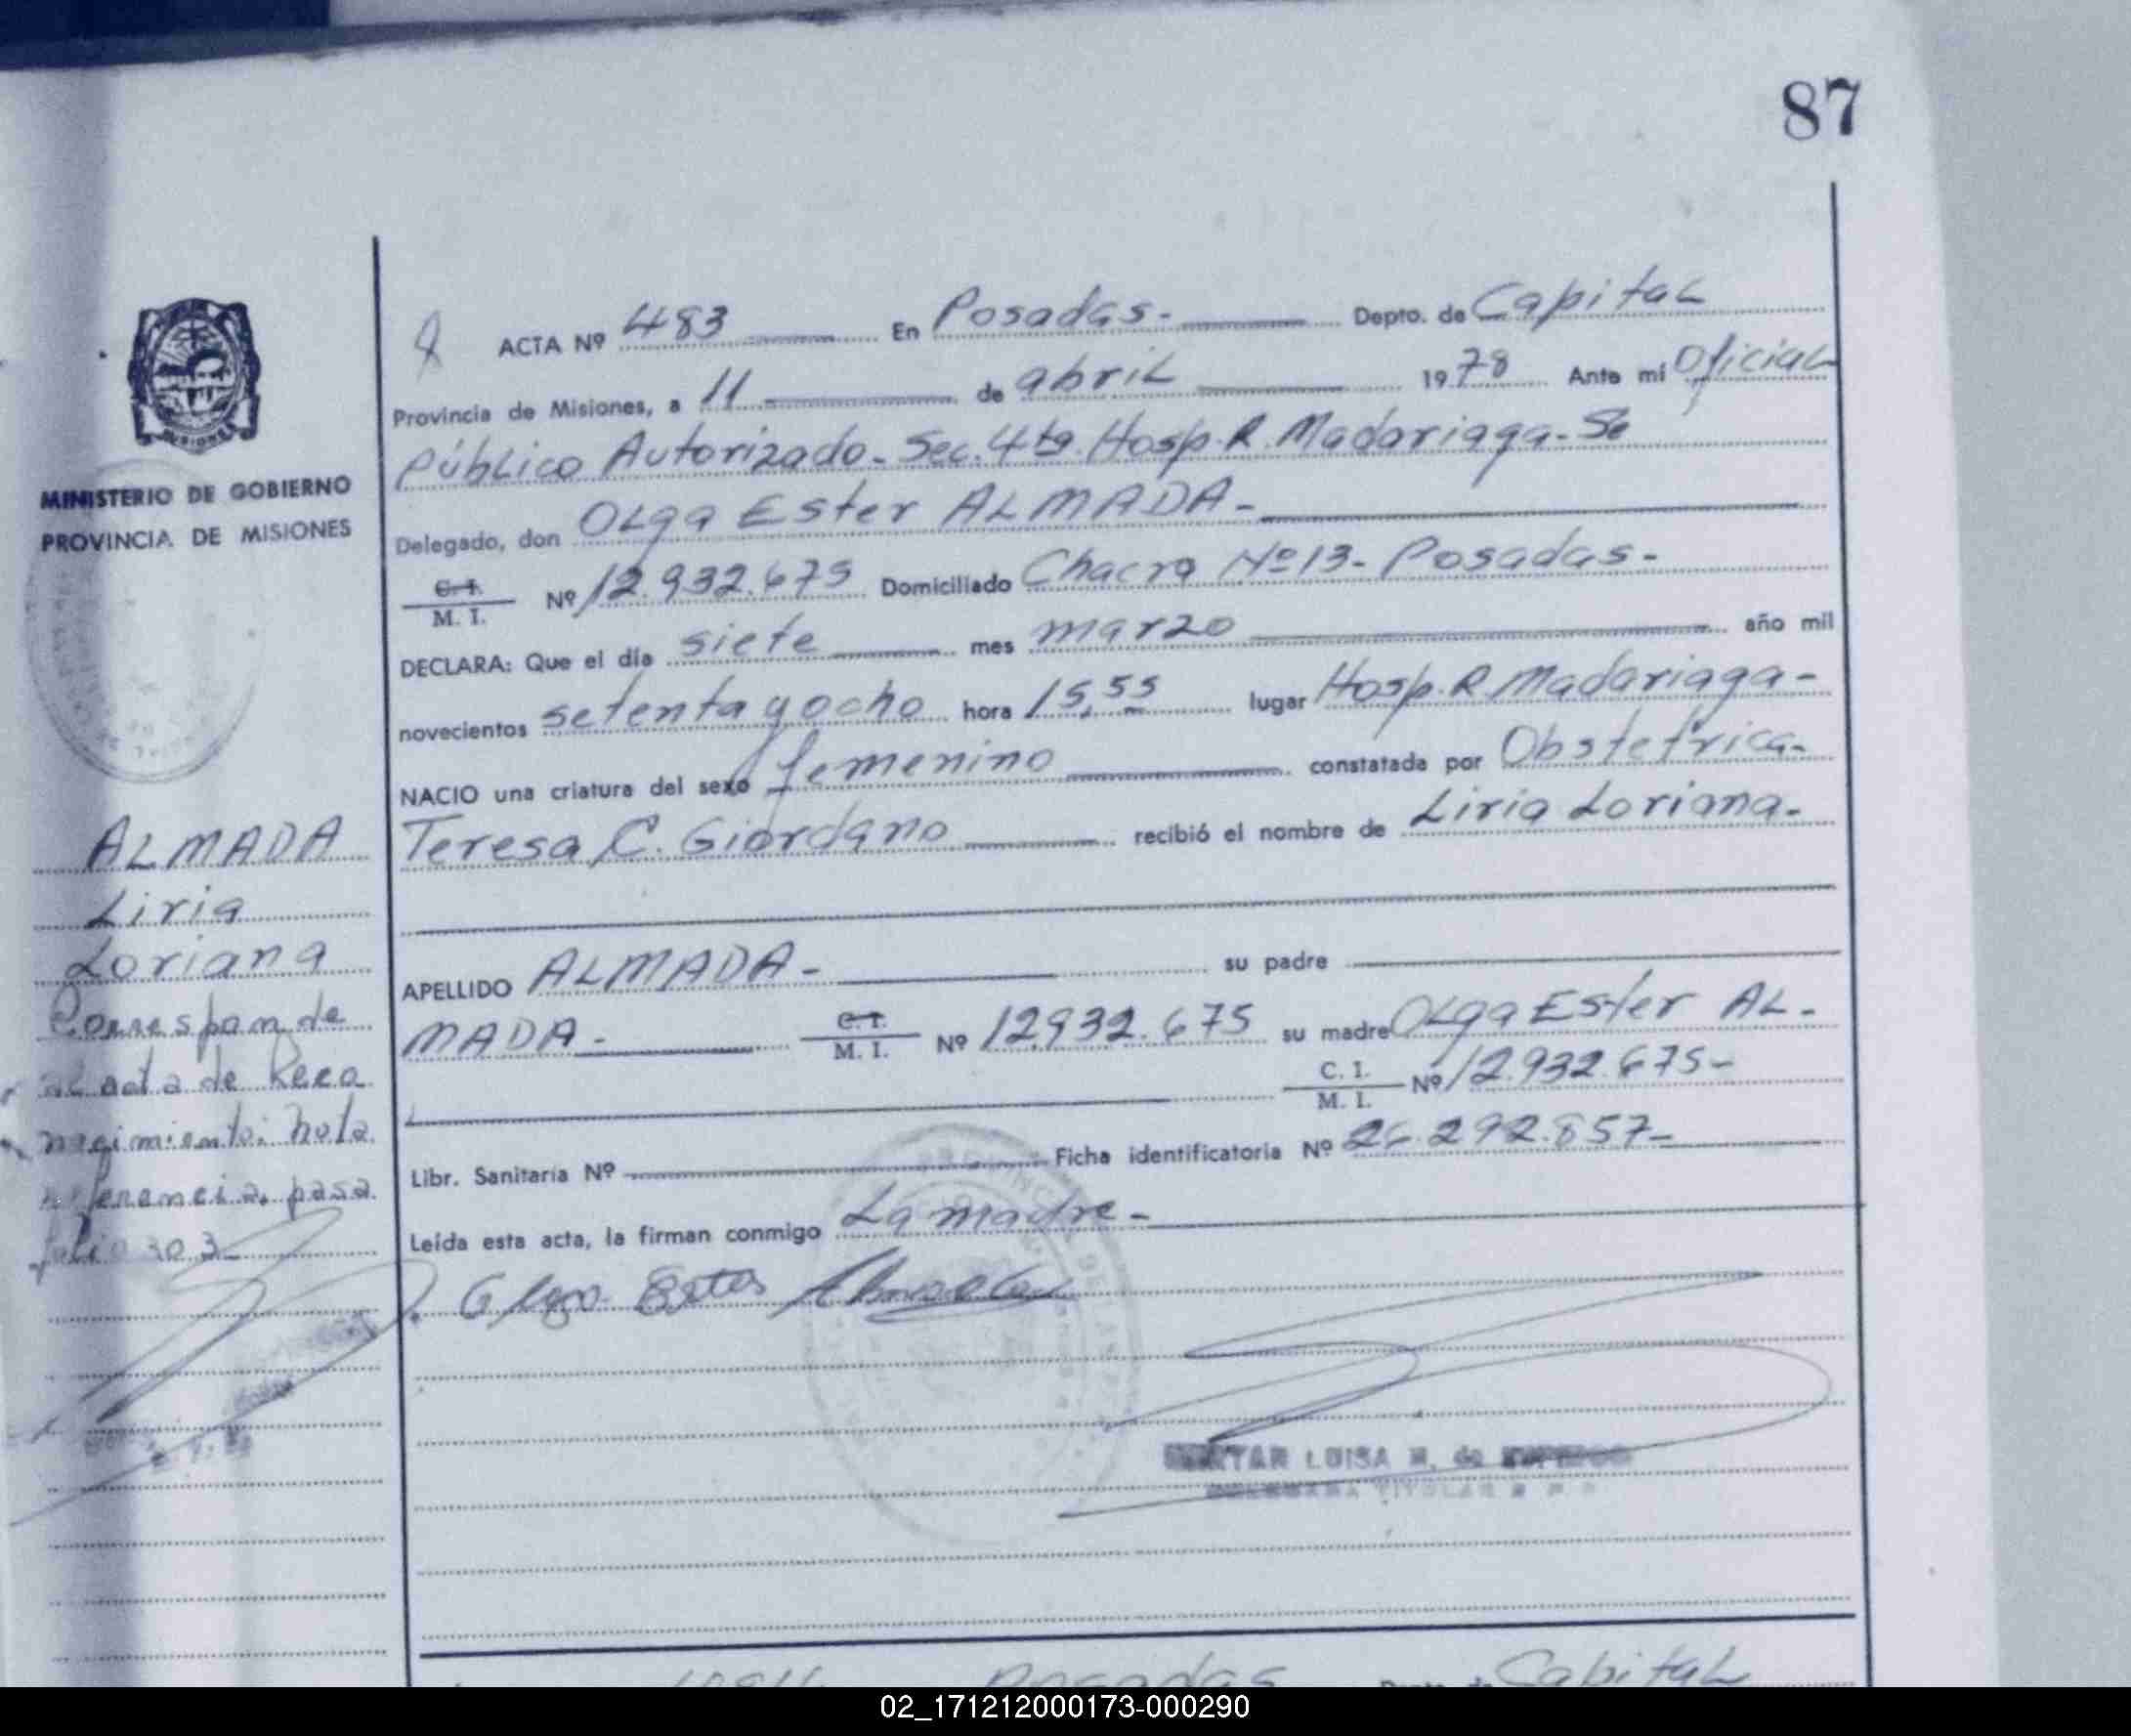 87
ACTA Nº 483 En Posadas.- Depto. de Capital
Provincia de Misiones, a 11 de abril 1978 Ante mi Oficial
Público Autorizado. Sec. 4ta. Hosp. R. Madariaga. Se
Delegado, don Olga Ester ALMADA.-
C. I.
M. I. Nº 12.932.675 Domiciliado Chacra Nº 13- Posadas.-
DECLARA: Que el día siete mes marzo año mil
novecientos setenta y ocho hora 15,55 lugar Hosp. R. Madariaga-
NACIO una criatura del sexo femenino constatada por Obstetrica.
Teresa C. Giordano recibió el nombre de Liria Loriana.
APELLIDO ALMADA- su padre
MADA.- C. I.
M. I. Nº 12.932.675 su madre Olga Ester AL-
C. I.
M. I. Nº 12.932.675-
Libr. Sanitaria Nº Ficha identificatoria Nº 26.292.857-
Leída esta acta, la firman conmigo La madre-
Olga Ester Almada
LUISA
TITULAR
MISIONES
MINISTERIO DE GOBIERNO
PROVINCIA DE MISIONES
ALMADA
Liria
Loriana
Corresponde
acta de Reco
nocimiento: nota
referencia, pasa
folio 303
Posadas Depto. de Capital
02_171212000173-000290